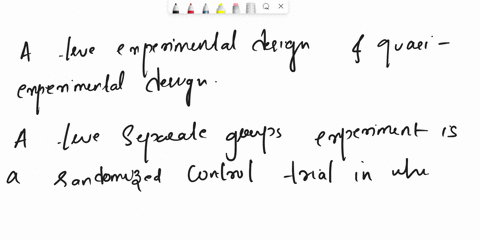 A true experimental design & quasi-
experimental design.
A true Separate groups experiment is
a randomized control trial in whe